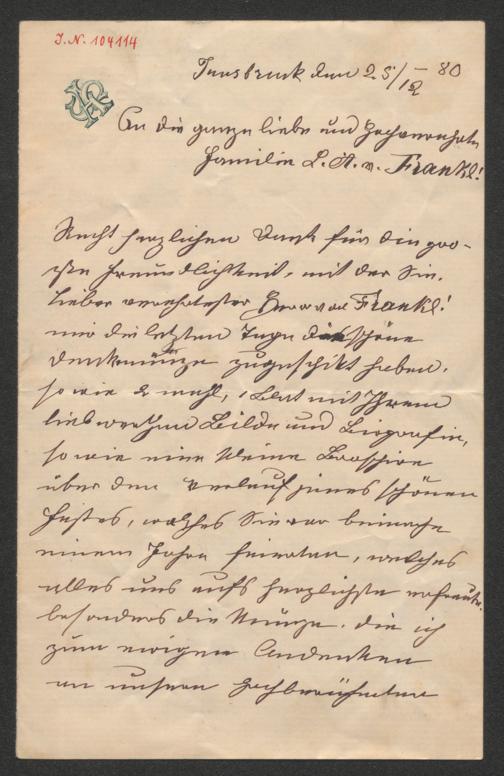 I.N. 104114
Innsbruck den 25/12 80
An die ganze liebe und Hochverehrte
Familie L. A. v. Frankl!
Recht herzlichen Dank für die gro-
ße Freundlichkeit, mit der Sie,
lieber verehrtester Herr von Frankl!
mir die letzten Tage die schöne
Denkmünze zugeschikt haben,
so wie 2 mahl, 1 Blat mit Ihrem
liebwerthen Bilde und Biografie,
so wie eine kleine Broschire
über den Verlauf jenes schönen
Festes, welches Sie vor beinahe
einem Jahre feierten, welches
alles uns aufs herzlichste erfreute.
besonders die Münze. die ich
zum ewigen Andenken
an unsern Hochberühmten